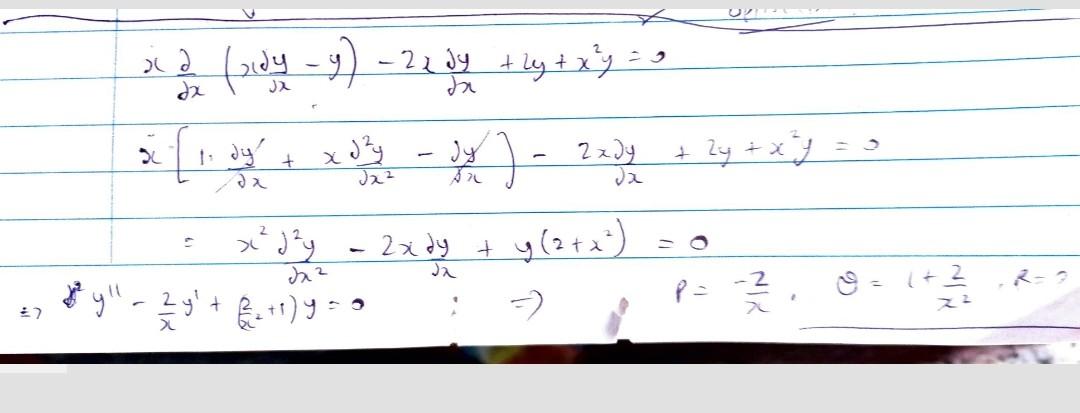 x d/dx (x dy/dx - y) - 2x dy/dx + 2y + x²y = 0
x [1. dy/dx + x d²y/dx² - dy/dx] - 2x dy/dx + 2y + x²y = 0
= x² d²y/dx² - 2x dy/dx + y(2+x²) = 0
=> y'' - 2/x y' + (2/x² + 1) y = 0 ; => P = -2/x , Q = 1 + 2/x² , R = 0